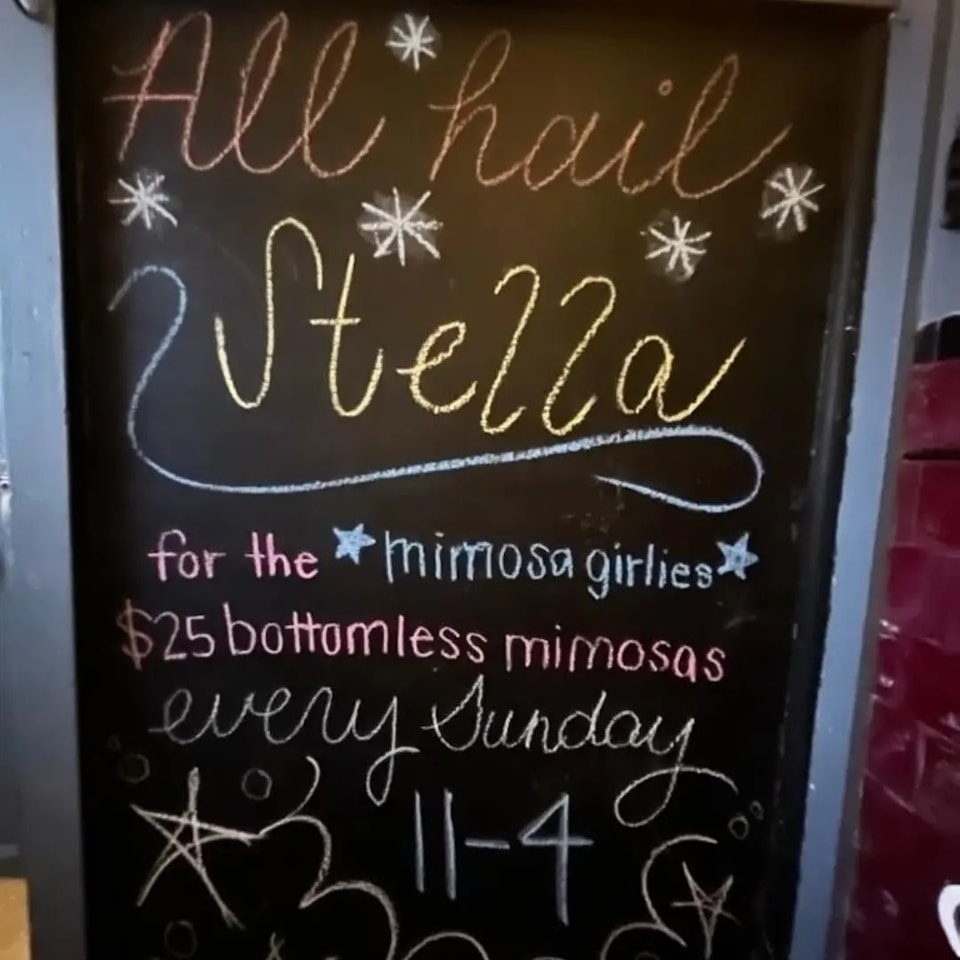 All hail
Stella
for the mimosa girlies
$25 bottomless mimosas
every Sunday
11-4